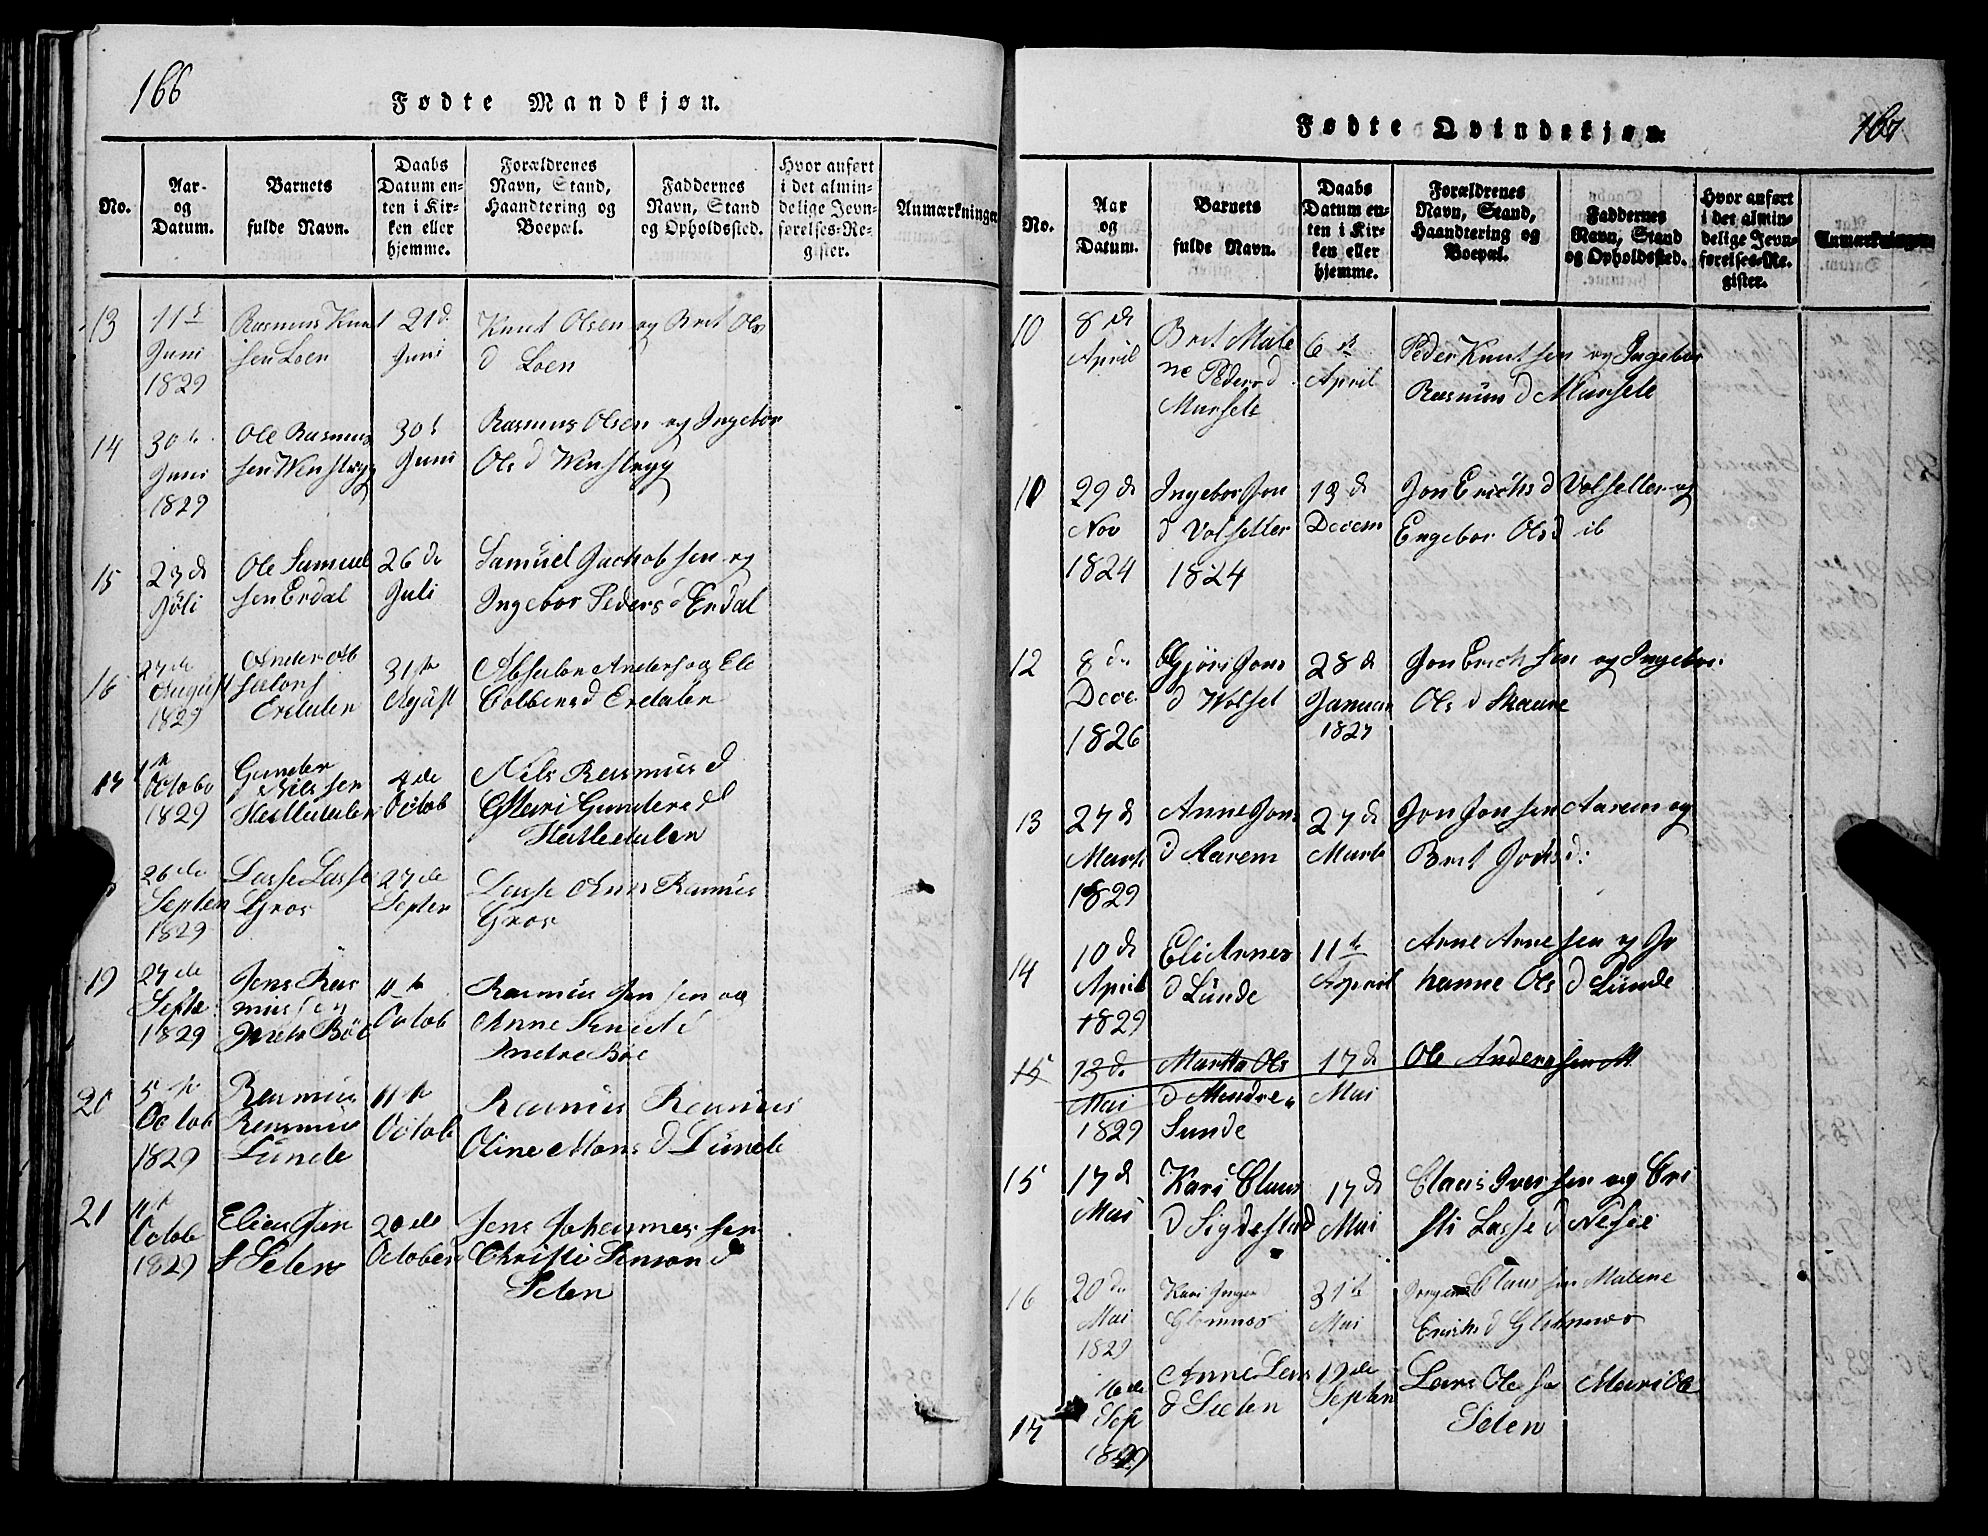 166
Fødte Mandkjøn.
No.
Aar-
og
Datum.
Barnets
fulde Navn.
Daabs
Datum en-
ten i Kir-
ken eller
hjemme.
Forældrenes
Navn, Stand,
Haandtering og
Boepæl.
Faddernes
Navn, Stand
og Opholdssted.
Hvor anført
i det almin-
delige Jevn-
førelses-Re-
gister.
Anmærkninger
13
11t
Juni
1829
Rasmus Knut
sen Loen
21 d.
Juni
Knut Olsen og Brit Ols
d Loen
14
30t
Juni
1829
Ole Rasmus
sen Wenstryg
30t
Juni
Rasmus Olsen og Ingebor
Ols d Wenstryg
15
23 de
Juli
Ole Samuel
sen Erdal
26 de
Juli
Samuel Jachobsen og
Ingebor Peders d Erdal
16
27 de
August
1829
Anders Ab
selons
Erdalen
31te
August
Abselon Anders og Eli
Colbens d Erdalen
17
Octobe
1829
Gunder
Nilssen
Hetledalen
4 de
Octob
Nils Rasmus d
Gunders d
Hetledalen
26 de
Septem
1829
Lasse Lasse
Gros
27 de
Septem
Lasse Anne Rasmus
Gros
19
27 de
Septe
1829
Jens Ras
mussen
Indre Böe
11te
Octob
Rasmus Jensen og
Anne
Indre Böe
20
5te
Octob
1829
Rasmus
Rasmus
Lunde
11te
Octob
Rasmus Rasmus
Oline Mons d Lunde
21
11t
Octob
1829
Elias Jen
s Seten
20 de
October
Jens Johannessen
Christi Simon d
Seten
167
Fødte Qvindekjøn.
No.
Aar
og
Datum.
Barnets
fulde Navn.
Daabs
Datum en-
ten i Kir-
ken eller
hjemme.
Forældrenes
Navn, Stand,
Haandtering og
Boepæl.
Faddernes
Navn, Stand
og Opholdssted.
Hvor anført
i det almin-
delige Jevn-
førelses-Re-
gister.
Anmærkninger
10
8 de
April
Brit Male
ne Peders d
Munsete
6te
April
Peder Knutsen og Ingebor
Rasmus d Munsete
10
29 de
Nov
1824
Ingebor Jon
d Volsetter
1824
13 de
Decem
Jon Erichs d Volsetter og
Engebor Ols d ib
12
8 de
Dece
1826
Gjöri Jons
d Wolset
28 d
Januar
1827
Jon Erichsen og Ingebor
Ols d Skaare
13
27 d
Marts
1829
Anne Jons
d Aarem
27 d
Marts
Jon Jonsen Aarem og
Brit Jochs d:
14
10 d
April
1829
Eli Arnes
d Lunde
11te
April
Arne Arnesen og Jo
hanne Ols d Lunde
15
13 d
Mai
1829
Martha Ols
d Mindre
Sunde
17 d
Mai
Ole Anderssen M
15
17 d
Mai
Kari Claus
d Sigdestad
17 d
Mai
Claus Iversen og Cri
sti Lasse d Nesie
16
20 de
Mai
1829
Kari Jorgen
Glomnes
31te
Mai
Jorgen Claussen Malene
Erichs d Glomnes
17
16 de
Sep
1829
Anne Lars
d Seten
19 de
Septem
Lars Olesen Mari Ole
Seten